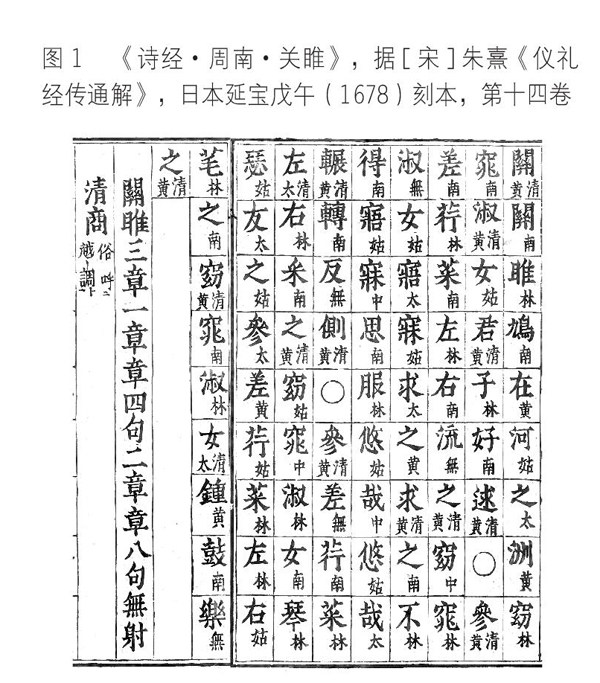 图1 《诗经·周南·关雎》，据[宋]朱熹《仪礼
经传通解》，日本延宝戊午（1678）刻本，第十四卷
關清黃關南雎林鳩南在黃河姑之太洲黃窈林
窕南淑清黃女姑君清黃子林好南逑清黃○參清黃
差南荇林菜南左林右南流無之清黃窈中窕林
淑無女姑寤太寐姑求太之黃求清黃之南不林
得南寤姑寐中思南服林悠姑哉中悠姑哉太
輾清黃轉南反無側清黃○參清黃差無荇南菜林
左清太右林采南之清黃窈姑窕中淑林女南琴林
瑟姑友太之姑參太差黃荇姑菜林左林右姑
芼林之南窈清黃窕南淑林女清太鍾黃鼓南樂無
之清黃
關雎三章一章章四句二章章八句無射
清商俗呼越調